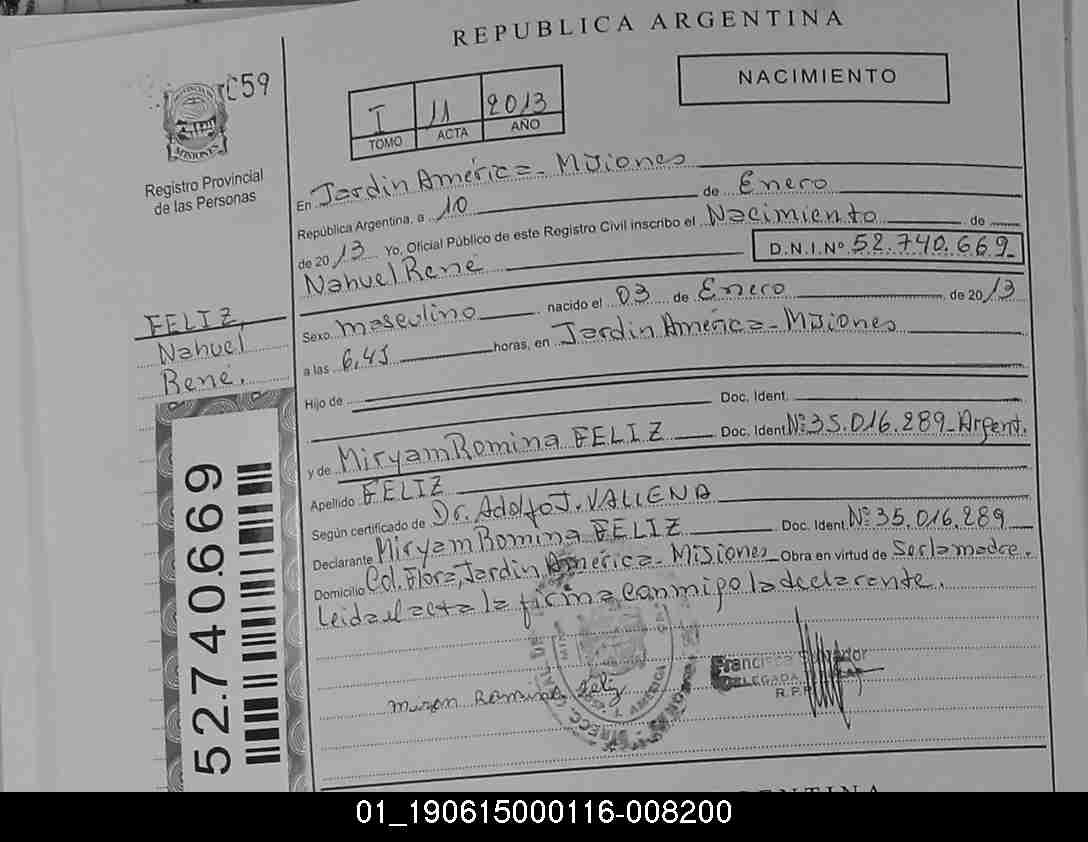 REPUBLICA ARGENTINA
C59
NACIMIENTO
I 11 2013
TOMO ACTA AÑO
Registro Provincial
de las Personas
MISIONES
En Jardin América - Misiones
República Argentina, a 10 de Enero
de 2013 Yo, Oficial Público de este Registro Civil inscribo el Nacimiento de
Nahuel René D.N.I.Nº 52.740.669
FELIZ,
Nahuel
René.
Sexo masculino nacido el 03 de Enero de 2013
a las 6,45 horas, en Jardin América - Misiones
Hijo de Doc. Ident.
y de Miryam Romina FELIZ Doc. Ident. Nº 35.016.289 - Argent.
Apellido FELIZ
Según certificado de Dr. Adolfo J. VALLENA
Declarante Miryam Romina FELIZ Doc. Ident. Nº 35.016.289
Domicilio Col. Flora, Jardin América - Misiones Obra en virtud de Ser la madre.
Leida el acta la firma conmigo la declarante.
Francisca
DELEGADA
R.P.P.
52.740.669
01_190615000116-008200